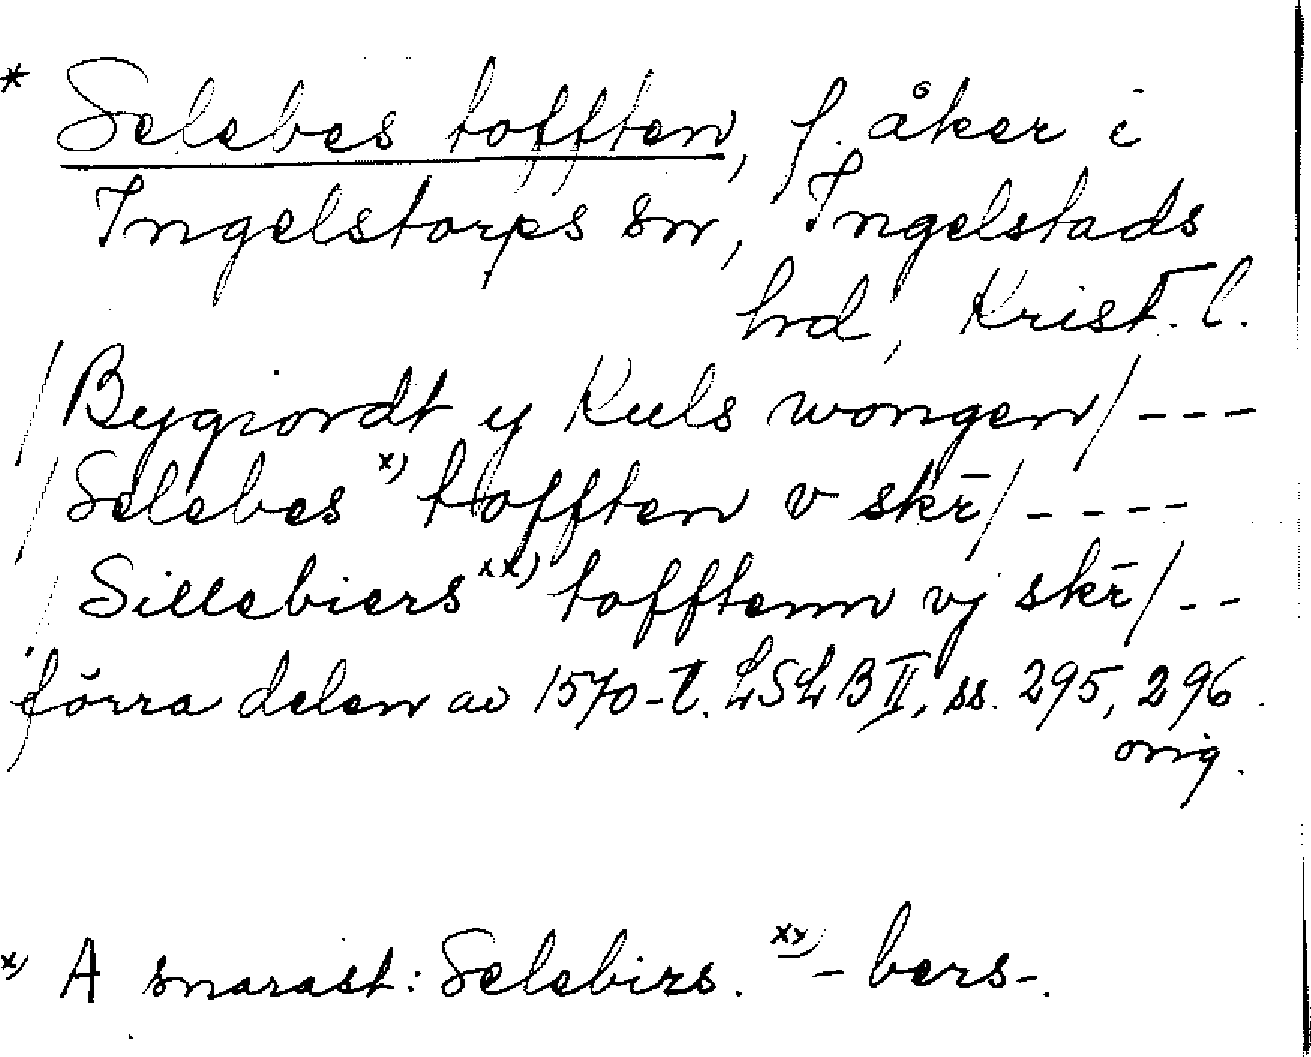 * Selebes tofften, f. åker i
Ingelstorps sn, Ingelstads
hd, Krist. l.
/Bygiordt y Kuls wongen/ ---
/Selebes x) tofften v skē/ ----
/Sillebiers xx) tofftenn vj skē/ --
förra delen av 1570-t. LSLB II, ss. 295, 296.
orig.
x) A snarast: Selebirs. xx) -bers-.